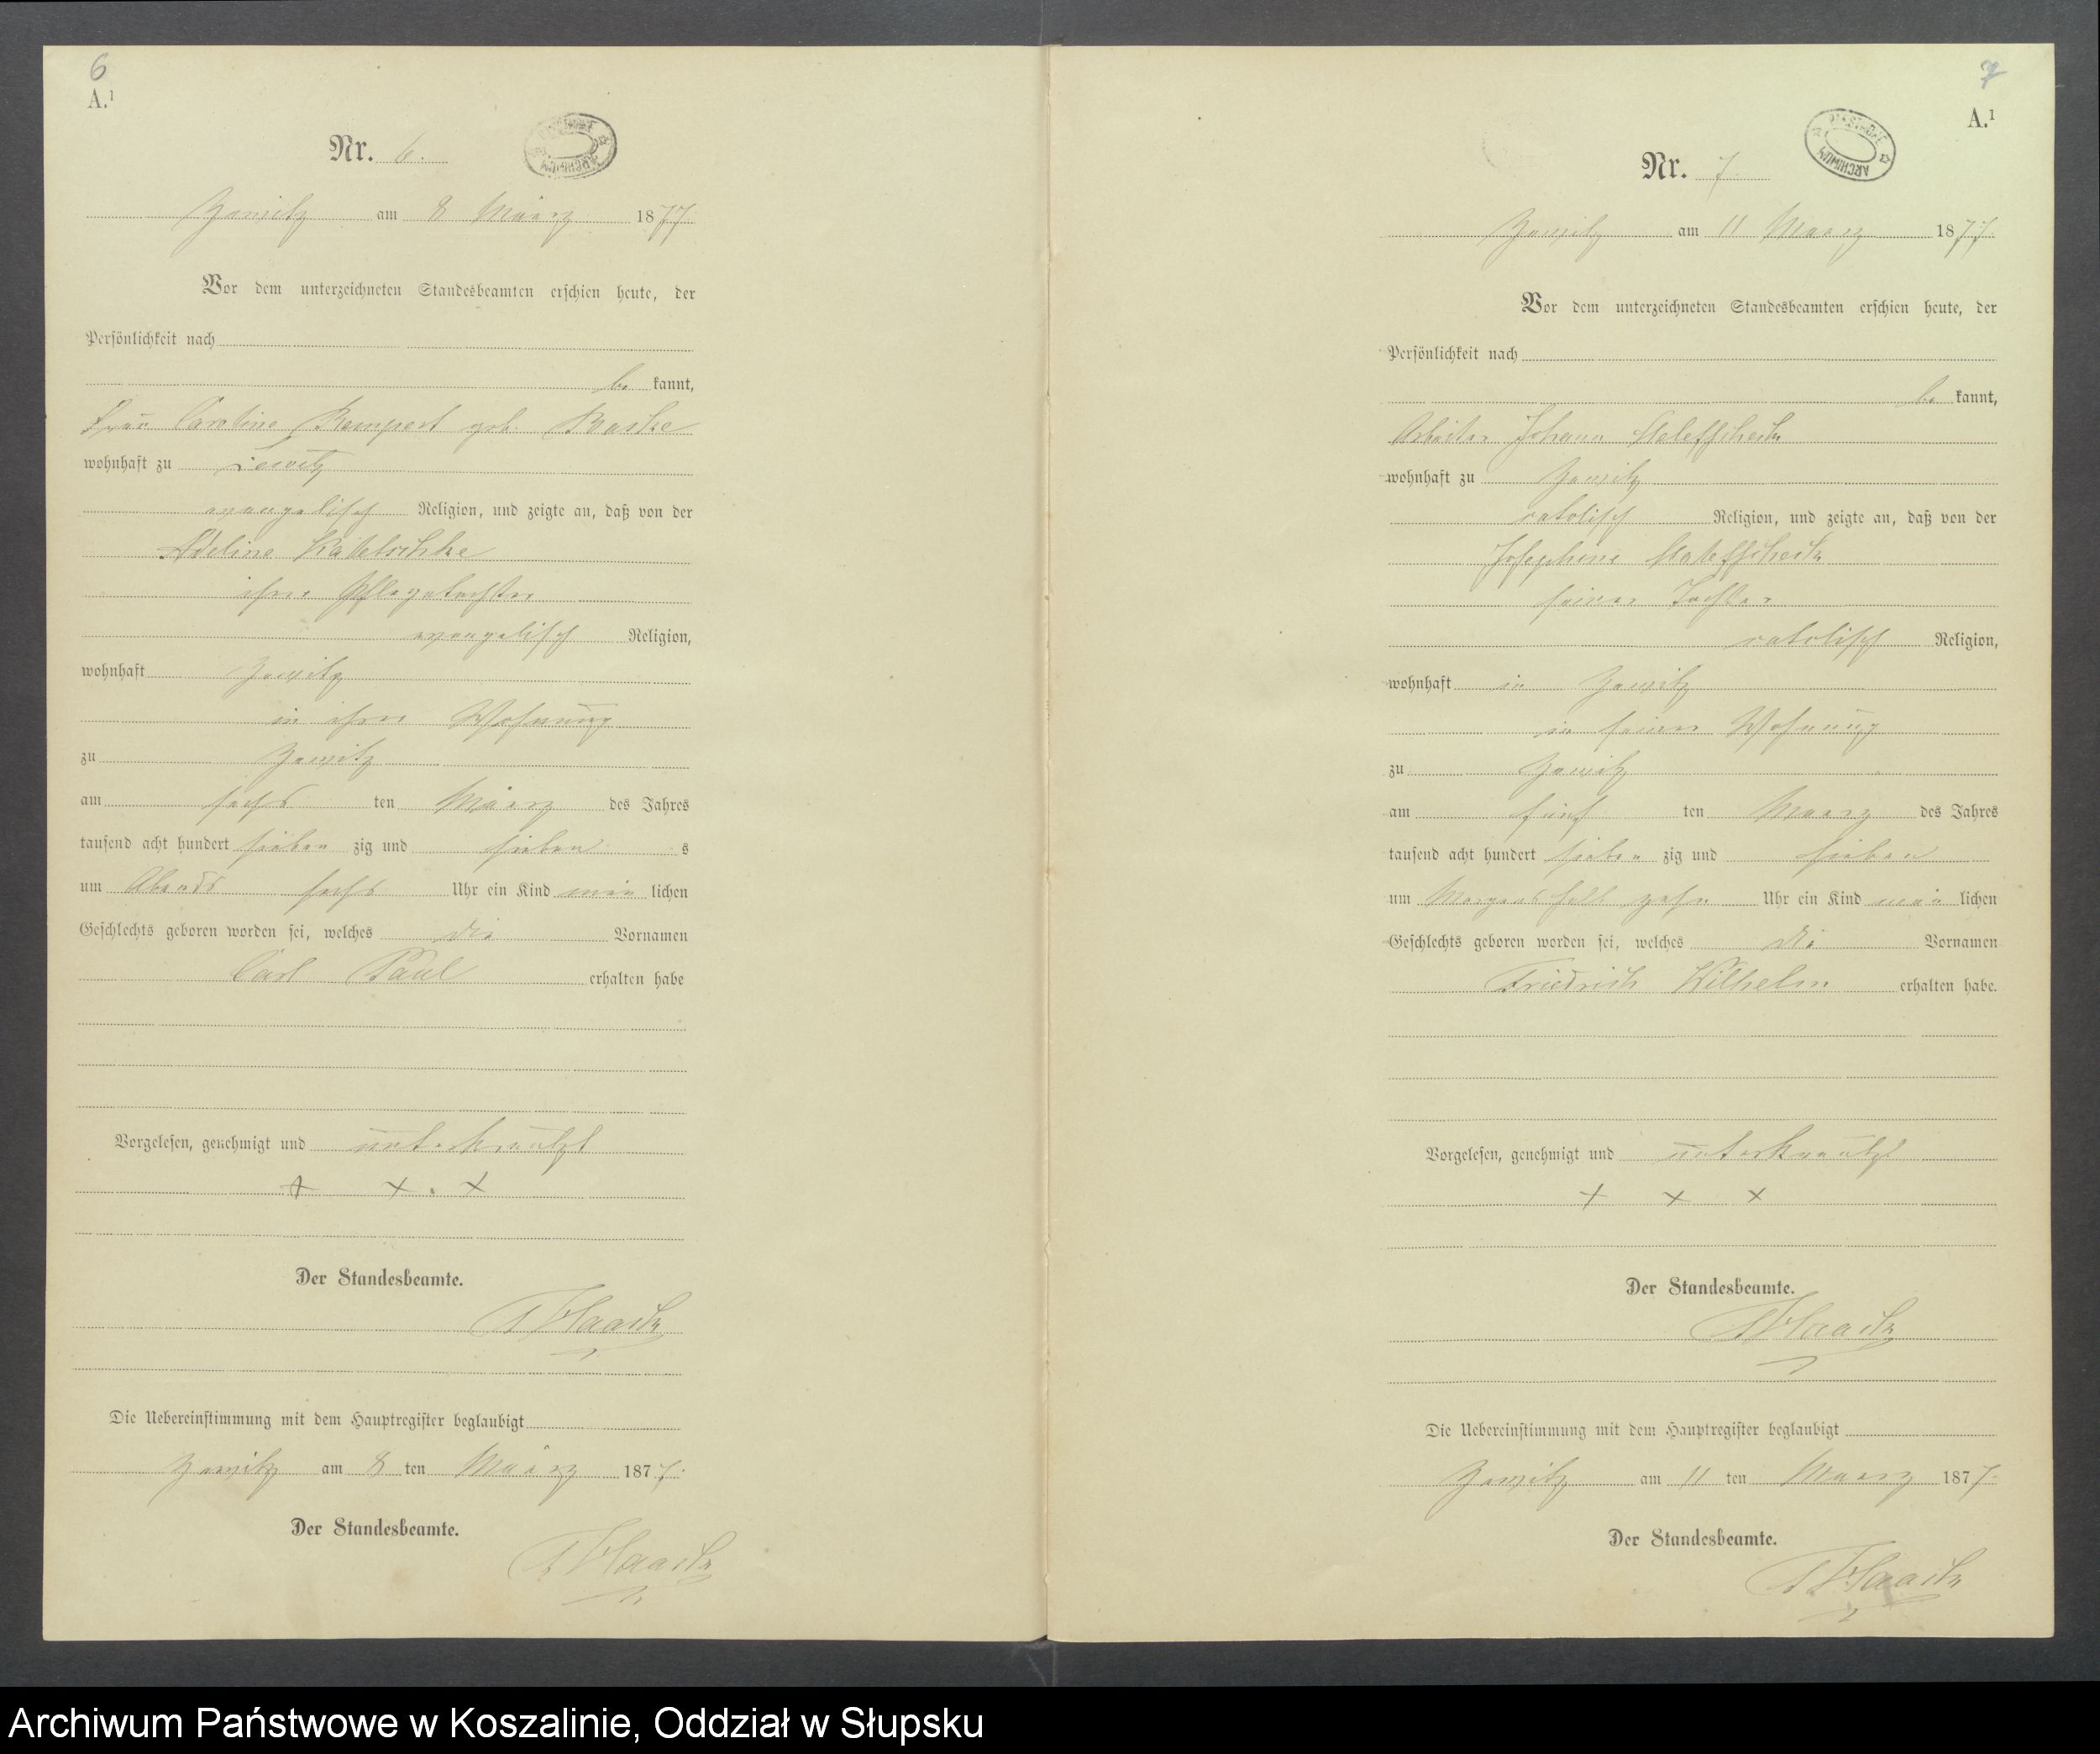 6
A.¹
Nr. 6.
PAŃSTWOWE ARCHIWUM
am 8 März 1877
Vor dem unterzeichneten Standesbeamten erschien heute, der
Persönlichkeit nach
be kannt,
Frau Caroline Rempert geb.
wohnhaft zu
evangelisch Religion, und zeigte an, daß von der
Adeline
ihre Pflegetochter
evangelisch Religion,
wohnhaft
in ihrer Wohnung
zu
am sechs ten März des Jahres
tausend acht hundert sieben zig und sieben s
um Abends sechs Uhr ein Kind män lichen
Geschlechts geboren worden sei, welches die Vornamen
Carl Paul erhalten habe
Vorgelesen, genehmigt und unterkreutzt
+ + . +
Der Standesbeamte.
Haack
Die Uebereinstimmung mit dem Hauptregister beglaubigt
am 8 ten März 1877.
Der Standesbeamte.
Haack
7
A.¹
Nr. 7.
PAŃSTWOWE ARCHIWUM
am 11 Maerz 1877.
Vor dem unterzeichneten Standesbeamten erschien heute, der
Persönlichkeit nach
be kannt,
Arbeiter Johann
wohnhaft zu
catolisch Religion, und zeigte an, daß von der
Josephine
seiner Tochter
catolisch Religion,
wohnhaft in
in seiner Wohnung
zu
am fünf ten Maerz des Jahres
tausend acht hundert sieben zig und sieben
um Morgens halb zehn Uhr ein Kind män lichen
Geschlechts geboren worden sei, welches die Vornamen
Friedrich Wilhelm erhalten habe.
Vorgelesen, genehmigt und unterkreutzt
+ + +
Der Standesbeamte.
Haack
Die Uebereinstimmung mit dem Hauptregister beglaubigt
am 11 ten Maerz 1877.
Der Standesbeamte.
Haack
Archiwum Państwowe w Koszalinie, Oddział w Słupsku